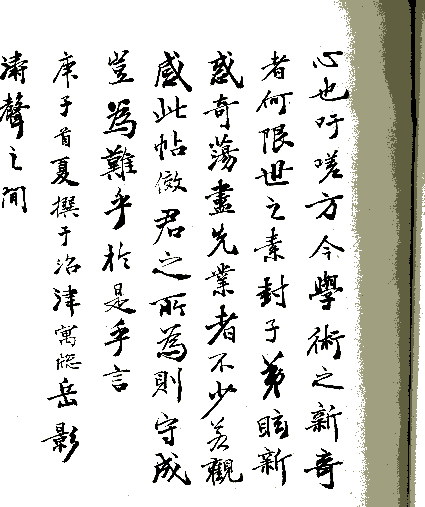 心也吁嗟方今學術之新奇
者何限世之素封子弟眩新
惑奇蕩盡先業者不少若觀
感此帖倣君之所為則守成
豈為難乎於是乎言
庚子首夏撰于沼津寓牕岳影
濤聲之間